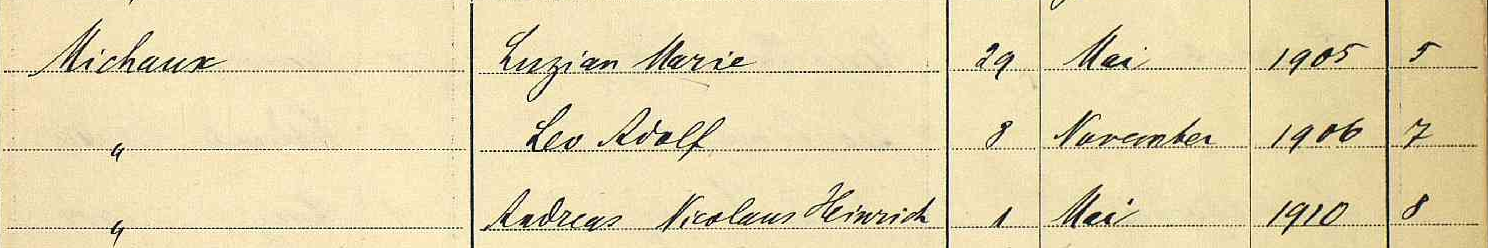 Michaux Luzian Marie 29 Mai 1905 5
" Leo Adolf 8 November 1906 7
" Andreas Nicolaus Heinrich 1 Mai 1910 8